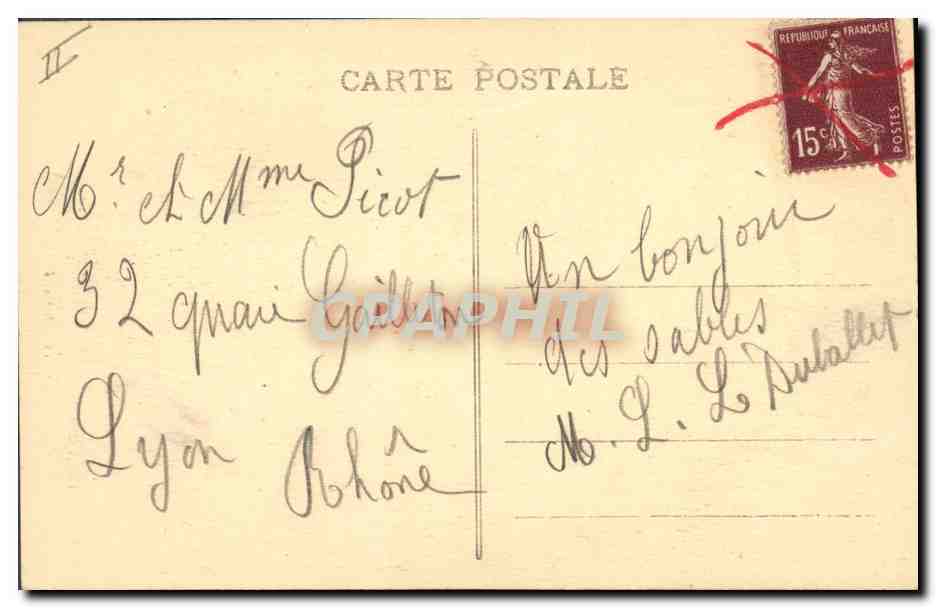 II
CARTE POSTALE
REPUBLIQUE FRANÇAISE
15c
POSTES
Mr. et Mme Picot
32 quai Gailleton
Lyon Rhône
Un bonjour
des sables
M. L. L Duballet
CPAPHIL